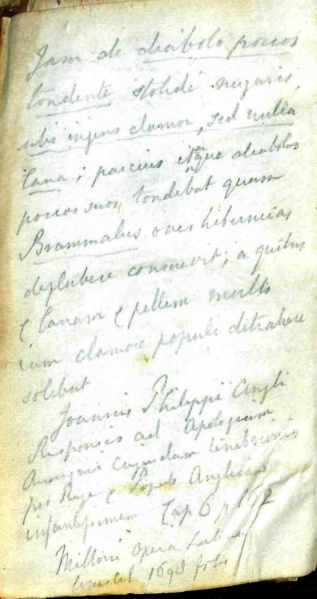 Jam de diabolo porcos
tondente stolide negaris,
ubi ingens clamor, sed nulla
lana; parcius itaque diabolos
porcos suos tondebat quam
Brammalus oves hibernicas
deglubere consuevit; a quibus
& lanam & pellem multo
cum clamore populi detrahere
solebat
Joannis Philippi Angli
Responsio ad Apologiam
Anonymi cujusdam tenebrionis
pro Rege & Populo Anglicano
infantissimam Cap 6 p
Miltoni Opera Latina
1698 folio